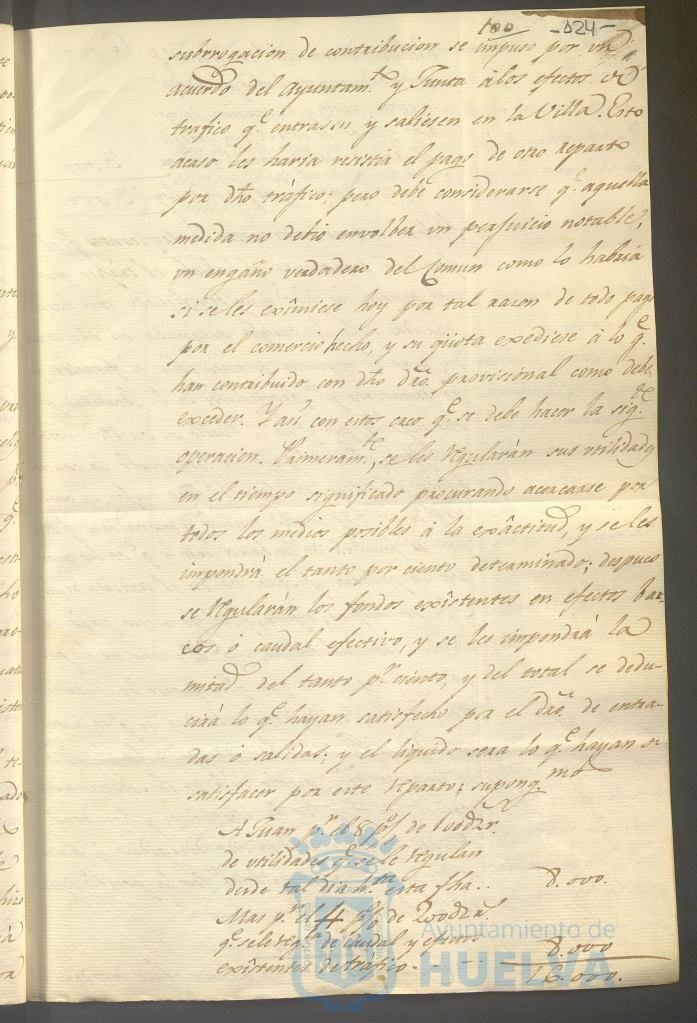 100 -024-
subrrogacion de contribucion se impuso por un
acuerdo del Ayuntam.to y Junta á los efectos de
trafico q.e entrasen y saliesen en la Villa. Esto
acaso les haria resistir el pago de otro reparto
por dho tráfico; pero debe considerarse q.e aquella
medida no debió envolber un perjuicio notable,
un engaño verdadero del Comun como lo habria
si se les exîmiese hoy por tal razon de todo pago
por el comercio hecho, y su qüota expediese á lo q.e
han contribuido con dho dro. provisional como debe
exceder. Y asi con estos creo q.e se debe hacer la sig.te
operacion. Primeram.te, se les regularán sus utilidades
en el tiempo significado procurando acercarse por
todos los medios posibles á la exâctitud, y se les
impondrá el tanto por ciento determinado; despues
se regularán los fondos exîstentes en efectos bar-
cos ó caudal efectivo, y se les impondrá la
mitad del tanto p.r ciento, y del total se dedu-
cirá lo q.e hayan satisfecho por el dro. de entra-
das ó salidas; y el liquido sera lo q.e hayan de
satisfacer por este reparto; supong.mos
A Juan p.r el 8 p% de 100d rr.
de utilidades q.e se le regulan
desde tal dia h.ta esta fha.. 8.000.
Mas p.r el 4 p% de 200d r.s
q.e se le reg.n de caudal y efectos
exîstentes de tráfico. - - - 8.000
16.000.
Ayuntamiento de
HUELVA